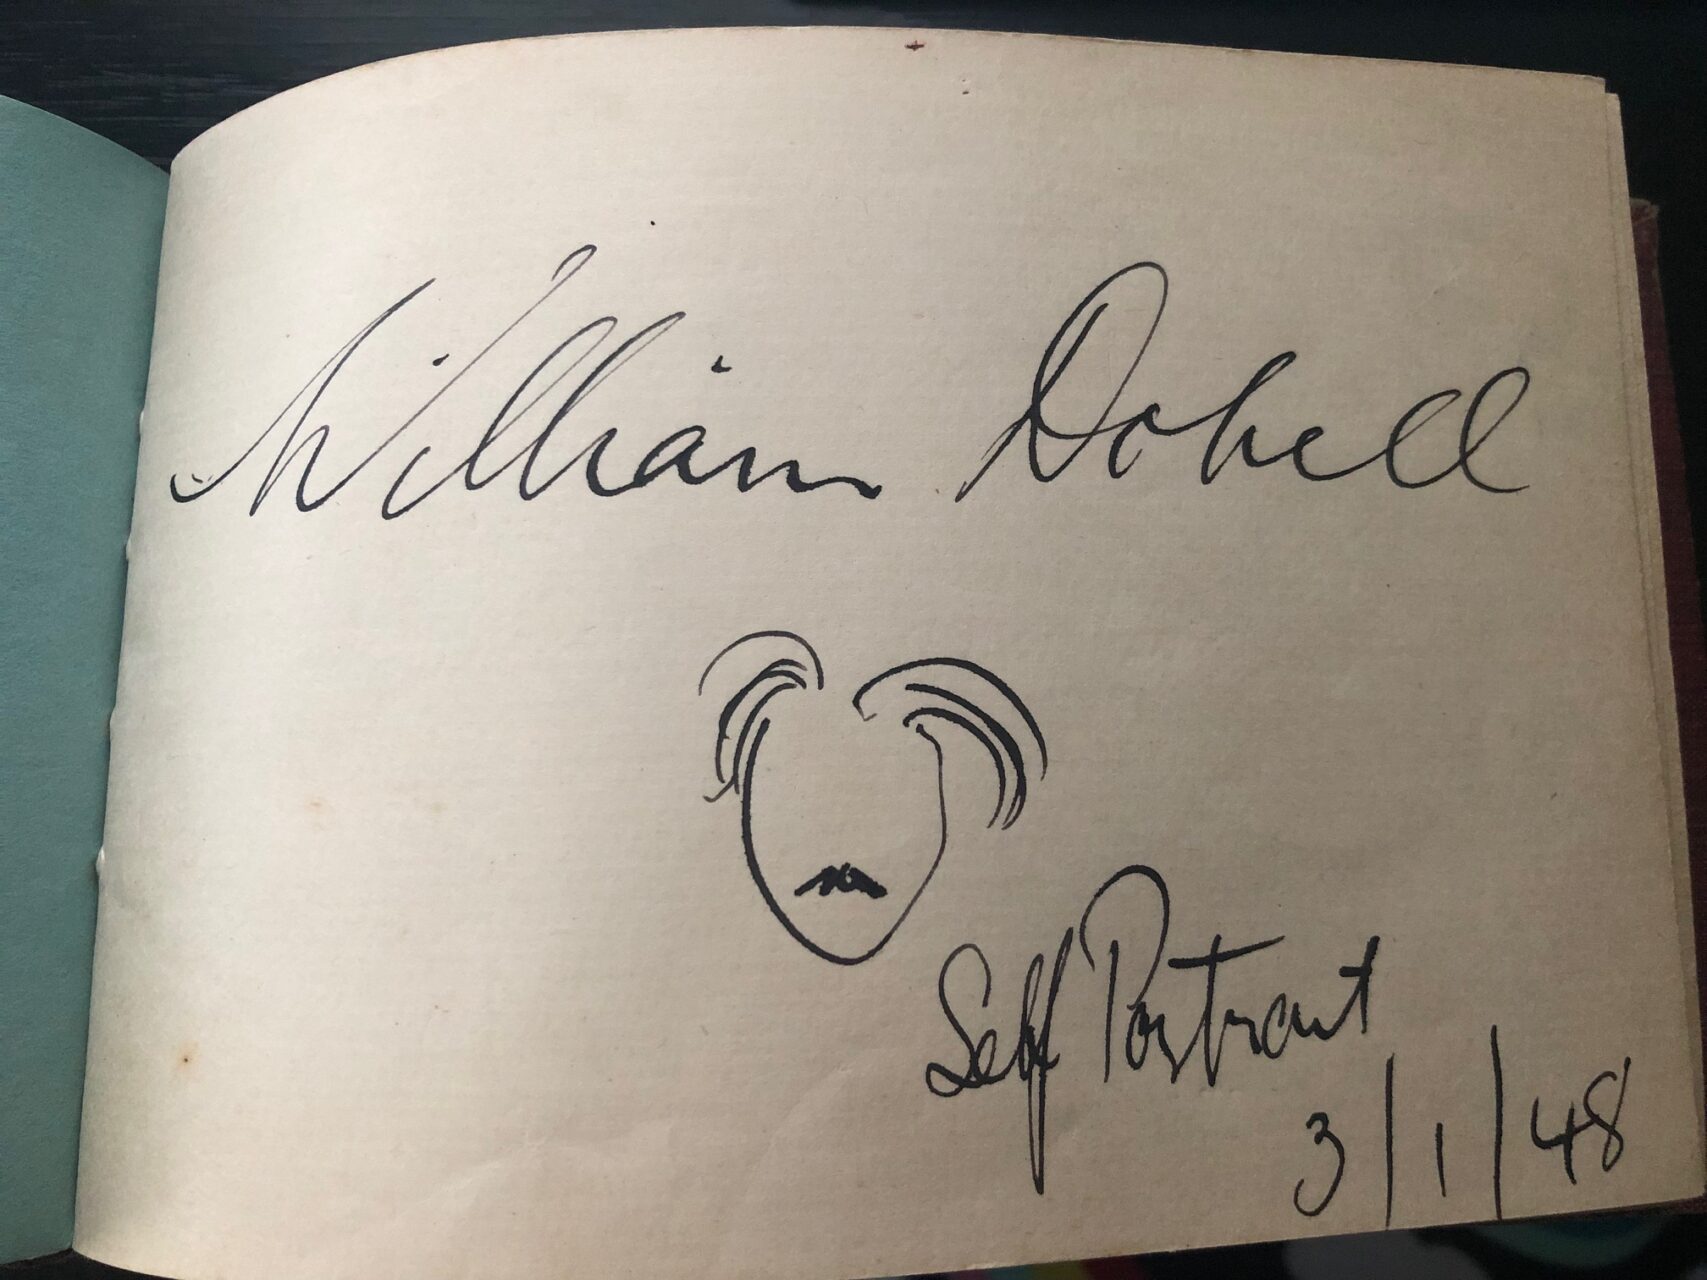 William Dobell
Self Portrait
3/1/48